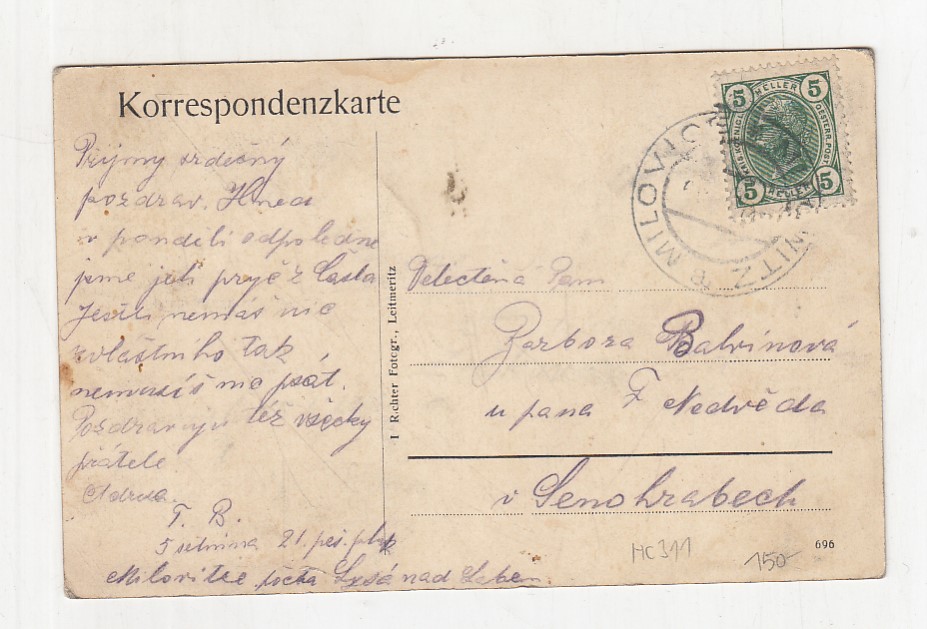 Korrespondenzkarte
Přijmy srdečný
pozdrav. Hned
v pondělí odpoledne
jsme jeli pryč z Časla
Jestli nemáš nic
zvláštního tak
nemusíš nic psát.
Pozdravuju též všecky
přátele
Adresa.
F. B.
5 setnina 21. pěš. pluk
Milovice pošta Lysá nad Laben
I Richter Fotogr., Leitmeritz
5 HELLER 5
KAIS. KOENIGL. OESTERR. POST
5 HELLER 5
MILOVIC
NITZ
Velectěná Paní
Barbora Balvínová
u pana F Nedvěda
v Senohrabech
HC311
150-
696